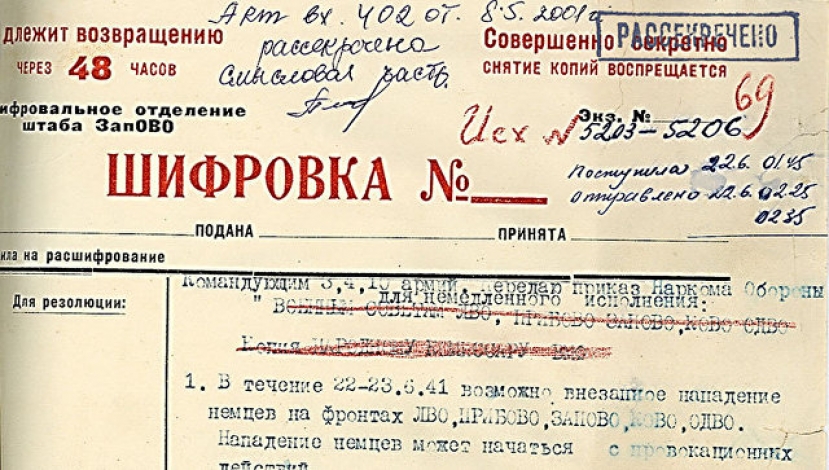 Акт вх. 402 от 8.5.2001г
рассекречена
смысловая часть
длежит возвращению
ЧЕРЕЗ 48 ЧАСОВ
Совершенно секретно
РАССЕКРЕЧЕНО
СНЯТИЕ КОПИЙ ВОСПРЕЩАЕТСЯ
69
ифровальное отделение
штаба ЗапОВО
Экз. №
Исх № 5203-5206
Поступила 22.6. 01.45
отправлено 22.6. 02.25
02.35
ШИФРОВКА №
ПОДАНА
ПРИНЯТА
ила на расшифрование
Для резолюции:
Командующим 3,4,10 армий. Передаю приказ Наркома Обороны
для немедленного исполнения:
" ВОЕННЫМ СОВЕТАМ ЛВО, ПРИБОВО ЗАПОВО, КОВО ОДВО
Копия НАРОДНОМУ КОМИССАРУ ВМФ
1. В течение 22-23.6.41 возможно внезапное нападение
немцев на фронтах ЛВО, ПРИБОВО, ЗАПОВО, КОВО, ОДВО.
Нападение немцев может начаться с провокационных
действий